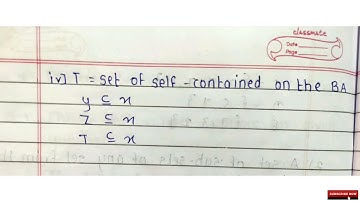 classmate
Date
Page
iv] T = set of self-contained on the BA
y ⊆ x
z ⊆ x
T ⊆ x
SUBSCRIBE NOW